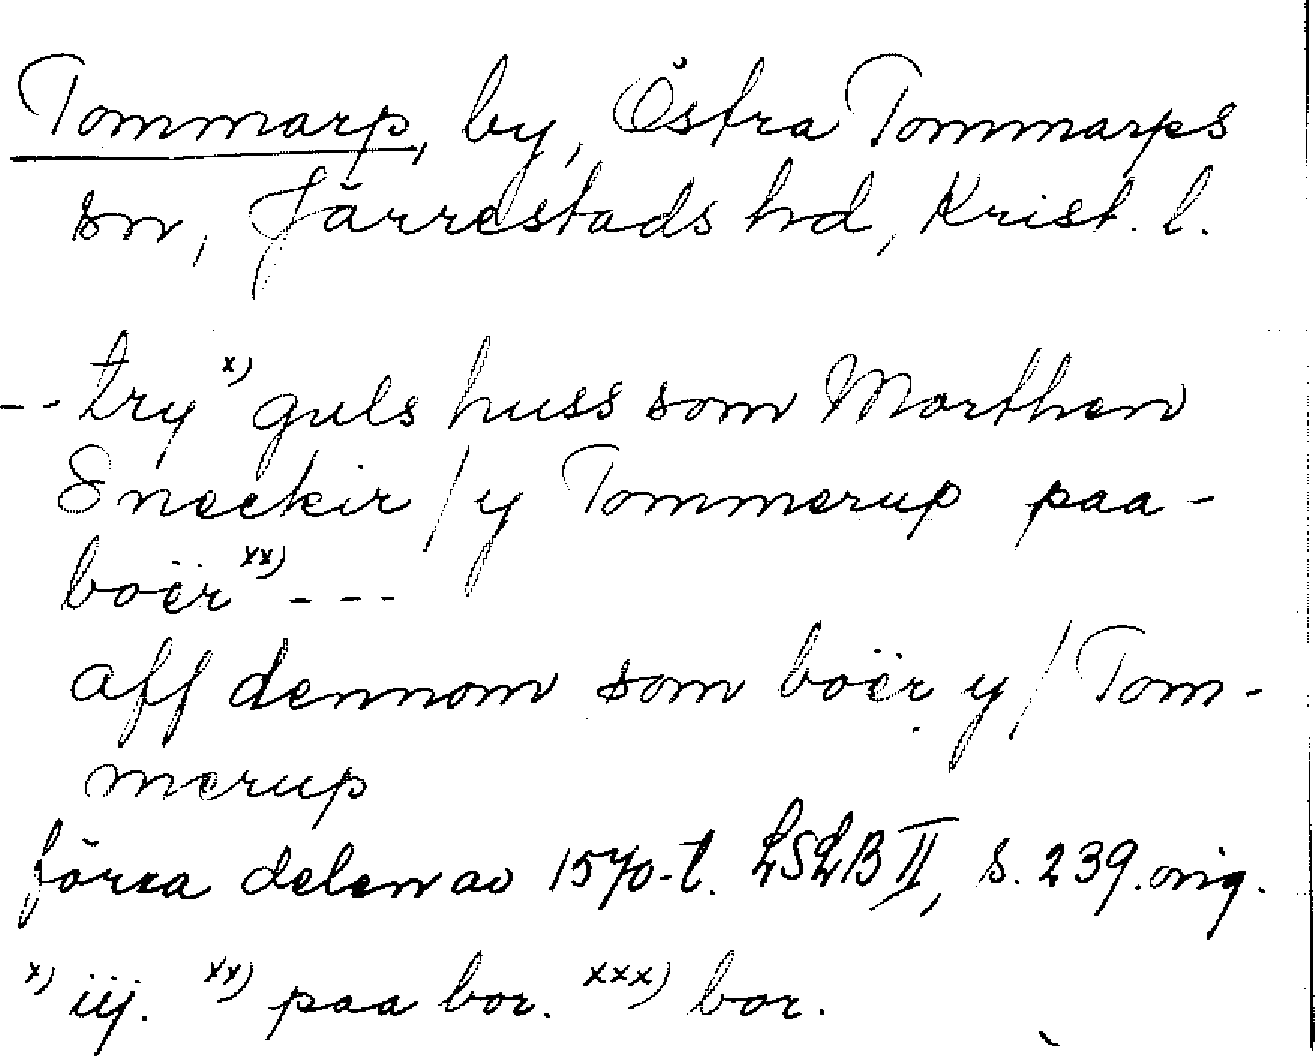 Tommarp, by, Östra Tommarps
sn, Järrestads hd, Krist. l.
-- try x) guls huss som Morthen
Sneckir / y Tommerup paa-
boër xx) ---
aff dennom som boër y / Tom-
merup
förra delen av 1570-t. LSLB II, s. 239. orig.
x) iij. xx) paa bor. xxx) bor.